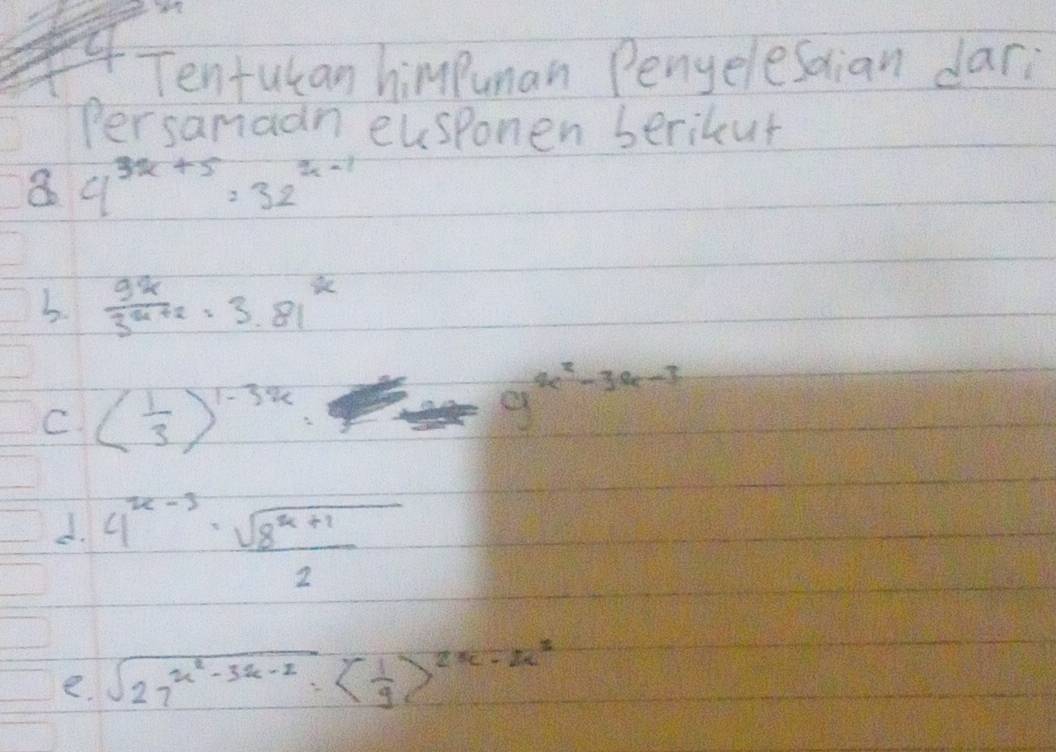 4 Tentukan himpunan Penyelesaian dari
Persamaan eksponen berikut
a. 4^{3x+5} = 32^{x-1}
b. \frac{9^x}{3^{x+2}} = 3.81^x
c. (\frac{1}{3})^{1-3x} = 9^{x^2-3x-3}
d. 4^{x-3} = \frac{\sqrt{8^{x+1}}}{2}
e. \sqrt{27^{x^2-3x-2}} = (\frac{1}{9})^{2x-2x^2}